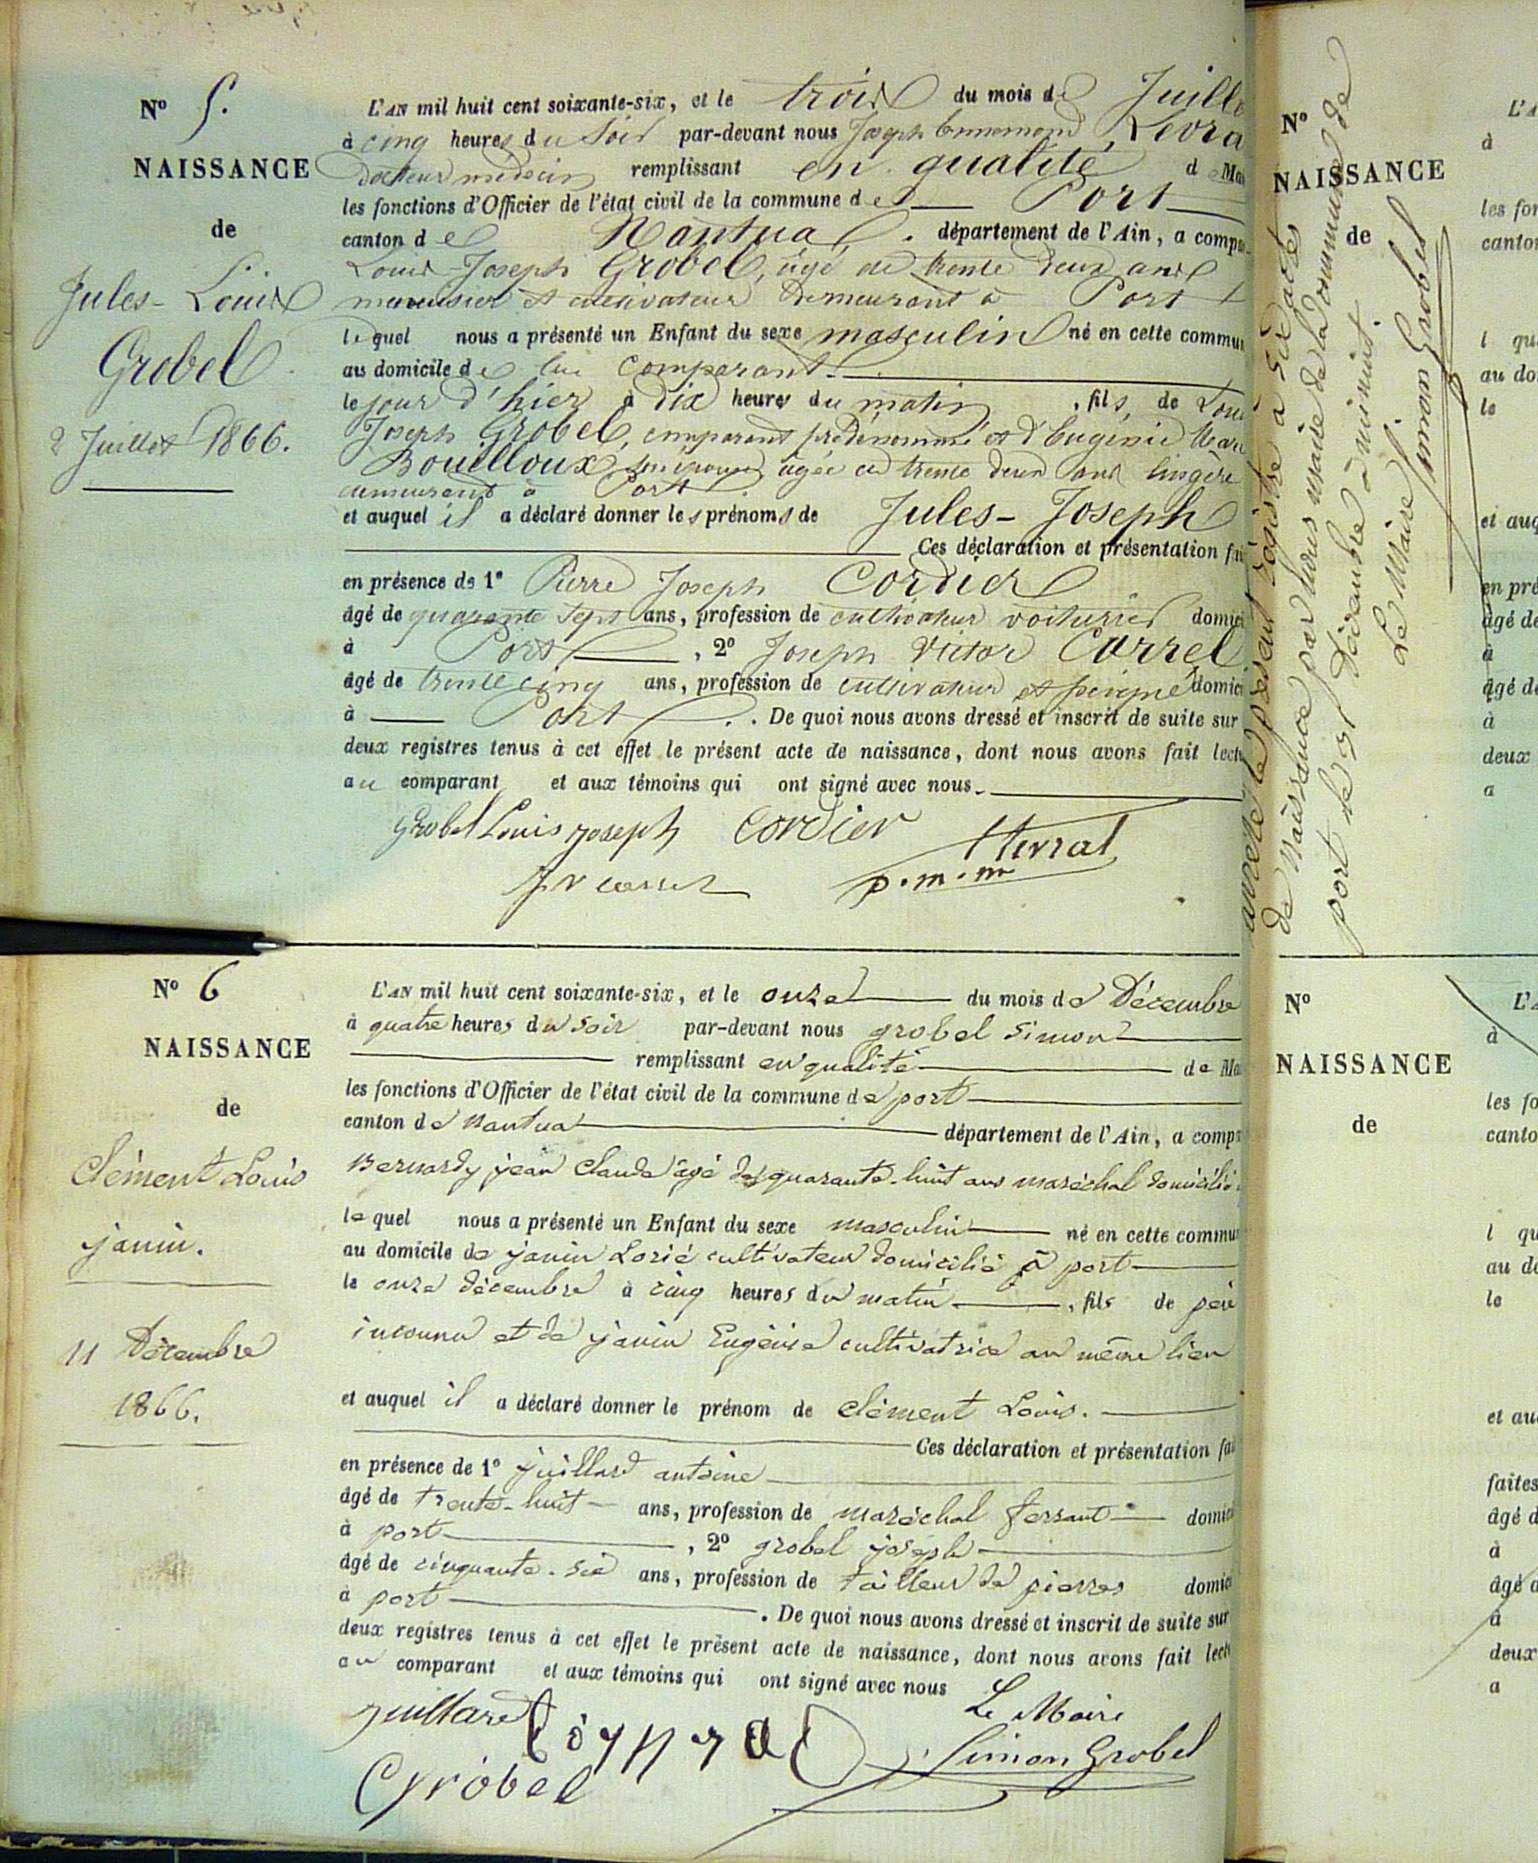 N° 5.
NAISSANCE
de
Jules-Louis
Grobel
2 Juillet 1866.
L'AN mil huit cent soixante-six, et le trois du mois de Juill
à cinq heures du Soir par-devant nous Joseph Ennemond
Docteur médecin remplissant en qualité d Ma
les fonctions d'Officier de l'état civil de la commune de Port
canton de Nantua. département de l'Ain, a compa
Louis-Joseph Grobel, âgé de trente deux ans
menuisier et cultivateur demeurant à Port
lequel nous a présenté un Enfant du sexe masculin né en cette commun
au domicile de lui Comparant.
le jour d'hier à dix heures du matin, fils, de Loui
Joseph Grobel, comparant prédénommé et d'Eugénie Mari
Bouilloux, son épouse, âgée de trente deux ans lingère
demeurant à Port
et auquel il a déclaré donner les prénoms de Jules-Joseph
Ces déclaration et présentation fai
en présence de 1° Pierre Joseph Cordier
âgé de quarante sept ans, profession de cultivateur voiturier domici
à Port, 2° Joseph Victor Carrel
âgé de trente cinq ans, profession de cultivateur et domici
à Port. De quoi nous avons dressé et inscrit de suite sur
deux registres tenus à cet effet le présent acte de naissance, dont nous avons fait lectu
au comparant et aux témoins qui ont signé avec nous.
Grobel Louis joseph cordier
p.m.m
N° 6
NAISSANCE
de
Clément Louis
janin.
11 Décembre
1866.
L'AN mil huit cent soixante-six, et le onze du mois de Décembre
à quatre heures du soir par-devant nous grobel simon
remplissant en qualité de Ma
les fonctions d'Officier de l'état civil de la commune de port
canton de Nantua département de l'Ain, a compa
Bernardy jean claude âgé de quarante-huit ans maréchal domicilié
lequel nous a présenté un Enfant du sexe masculin né en cette commun
au domicile de janin cultivateur domicilié à port
le onze décembre à cinq heures du matin, fils de père
inconnu et de janin Eugénie cultivatrice au même lieu
et auquel il a déclaré donner le prénom de clément Louis.
Ces déclaration et présentation fai
en présence de 1° juillard antoine
âgé de trente-huit ans, profession de maréchal ferrant domici
à port, 2° grobel joseph
âgé de cinquante-six ans, profession de tailleur de pierres domici
à port. De quoi nous avons dressé et inscrit de suite sur
deux registres tenus à cet effet le présent acte de naissance, dont nous avons fait lectu
au comparant et aux témoins qui ont signé avec nous
juillard Le Maire
Grobel Simon Grobel
N°
NAISSANCE
de
arrêté le présent registre à six actes
de Naissance par nous maire de la commune de
port le 31 Décembre à minuit
Le Maire
Simon Grobel
L'A
à
les fon
canton
l qu
au do
le
et auq
en pré
âgé de
à
âgé de
à
deux
a
N°
NAISSANCE
de
L'A
à
les fo
canto
l qu
au do
le
et au
faites
âgé d
à
âgé d
à
deux
a